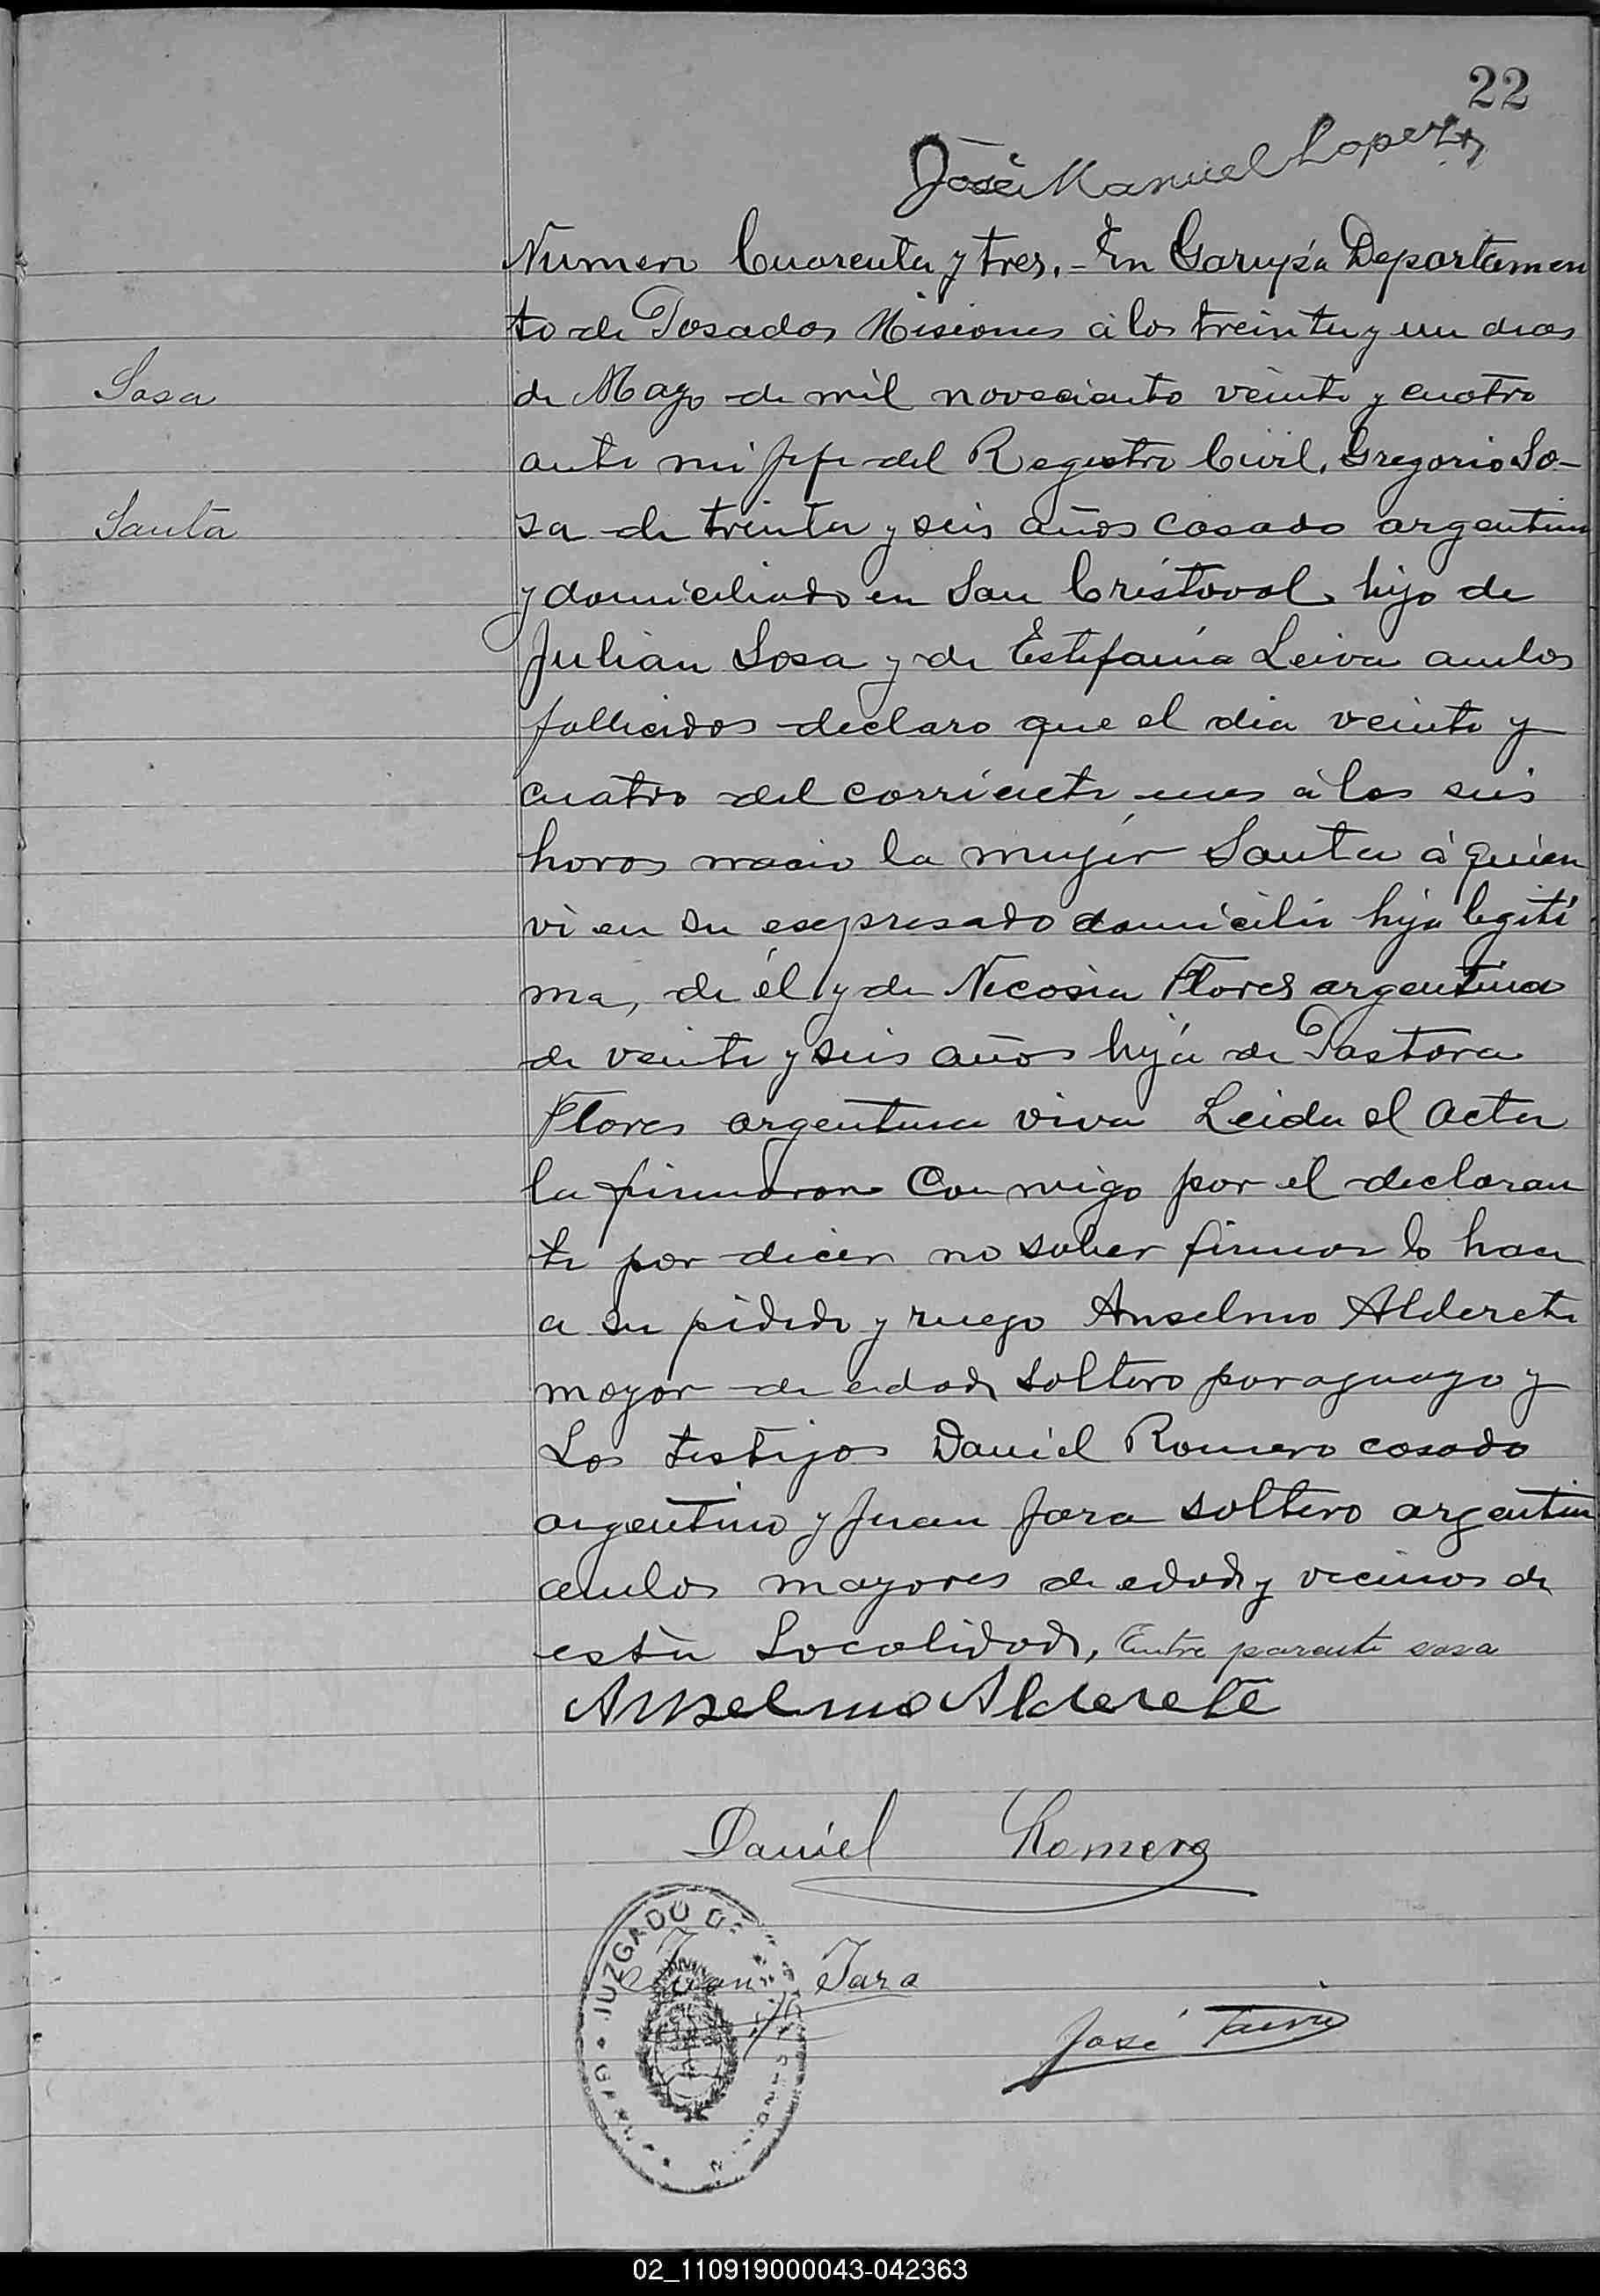 22
José Manuel Lopez
Numero Cuarenta y tres. - En Garupá Departamen
to de Posadas Misiones á los treinta y un dias
Sosa
de Mayo de mil noveciento veinte y cuatro
ante mi Jefe del Registro Civil, Gregorio So-
Santa
sa de treinta y seis años casado argentino
y domiciliado en San Cristoval hijo de
Julian Sosa y de Estefania Leiva ambos
fallecidos declaro que el dia veinte y
cuatro del corriente mes á las seis
horas nacio la mujer Santa á quien
vi en su esepresado domicilio hija legiti
ma, de él y de Necosia Flores argentina
de veinte y seis años hija de Pastora
Flores argentina viva Leida el acta
la firmaron Con migo por el declaran
te por decir no saber firmar lo hace
a su pedido y ruego Anselmo Alderete
mayor de edad soltero paraguayo y
Los testigos Daniel Romero casado
argentino y Juan Jara soltero argentino
ambos mayores de edad y vecinos de
esta Localidad, Entre parente sosa
Anselmo Alderete
Daniel Romero
JUZGADO
Juan Jara
José
02_110919000043-042363